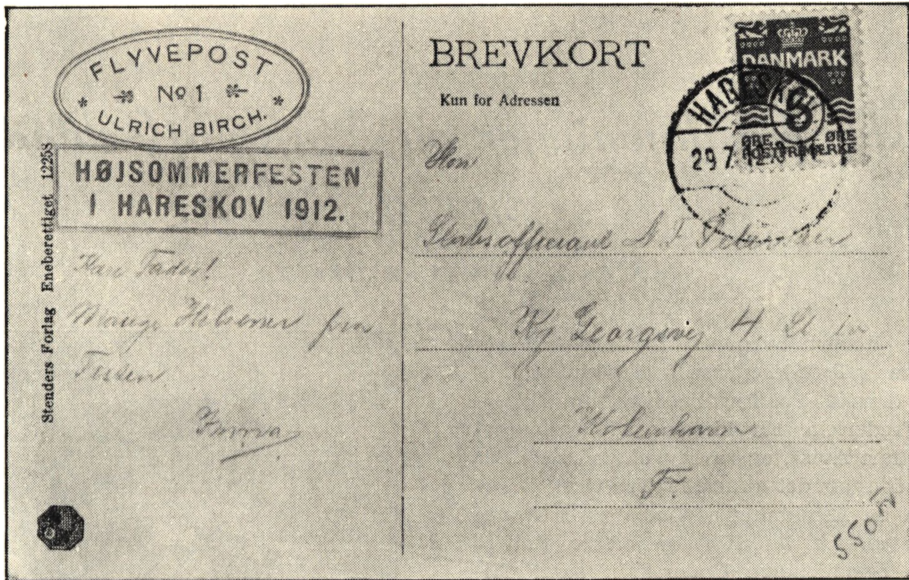 FLYVEPOST
Nº 1
ULRICH BIRCH.
HØJSOMMERFESTEN
I HARESKOV 1912.
Stenders Forlag Eneberettiget 12258
Kære Fader!
Mange Hilsener fra
Festen.
BREVKORT
Kun for Adressen
DANMARK
5
ØRE ØRE
HARESKOV
29 7
Hr.
N. P. Petersen
Kg. Georgsvej 4.
København
F.
550